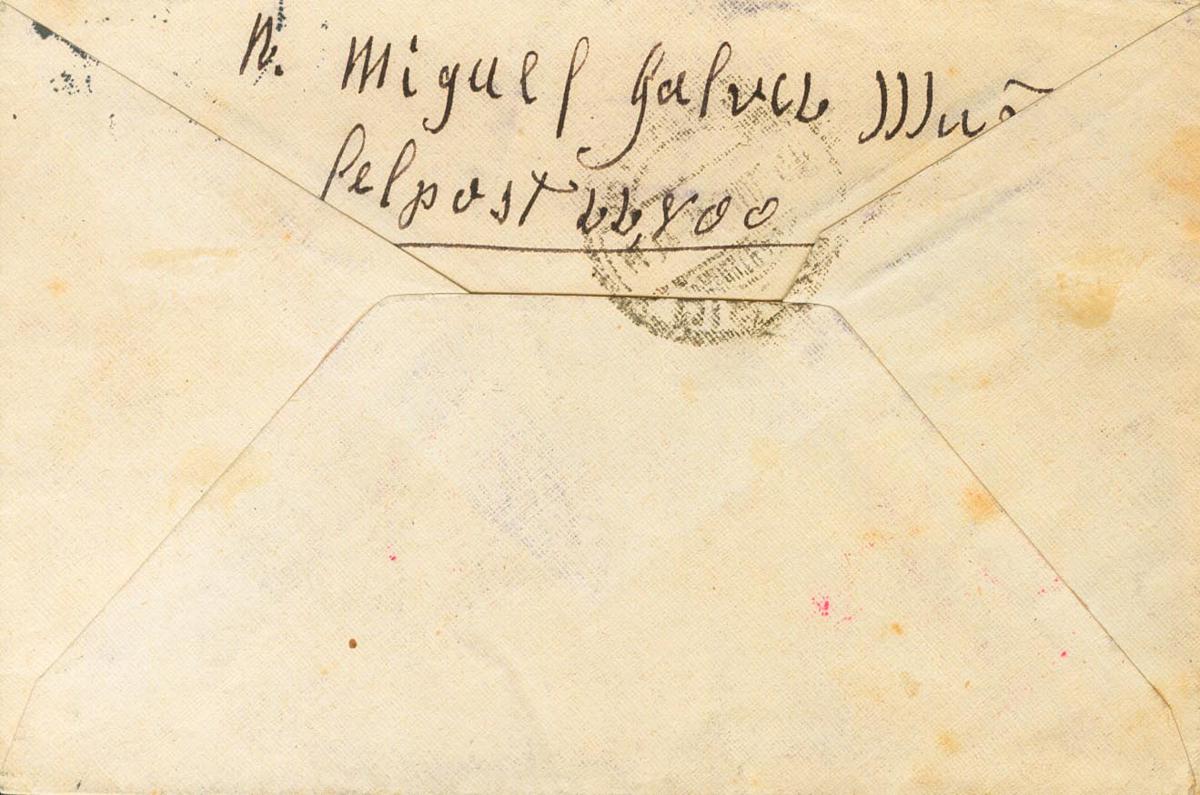 R. Miguel Galvez Muñ
Felpost 22,800